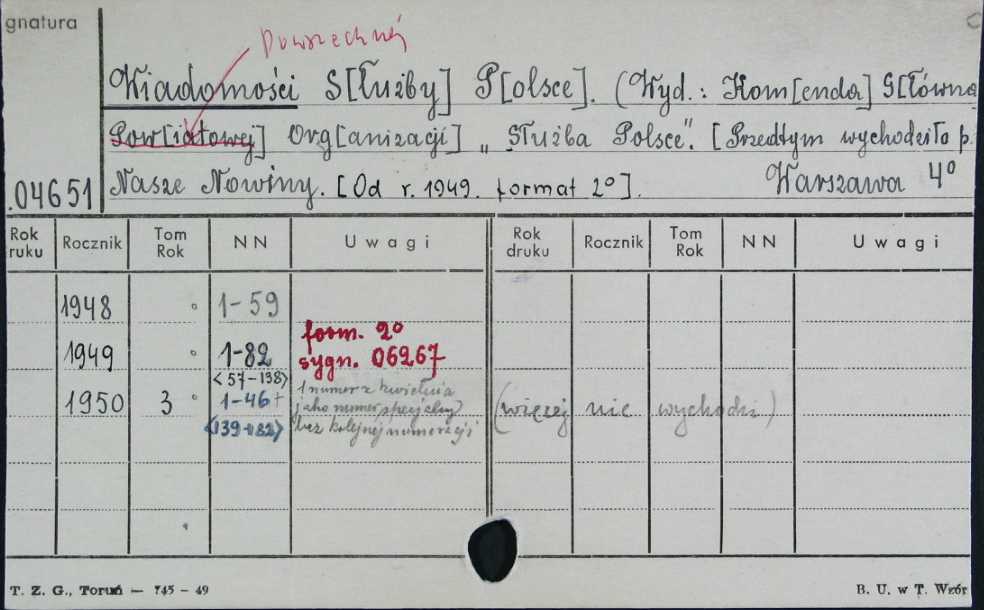 gnatura
Powszechnej
Wiadomości S[łużby] P[olsce]. (Wyd.: Kom[enda] G[łówna
Pow[iatowej] Org[anizacji] „Służba Polsce". [Przedtym wychodziło p.
.04651 Nasze Nowiny. [Od r. 1949. format 2°]. Warszawa 4°
Rok ruku Rocznik Tom Rok NN Uwagi Rok druku Rocznik Tom Rok NN Uwagi
1948 1-59
form. 2°
1949 1-82 sygn. 06267
<57-138> 1 numer z kwietnia
1950 3 1-46+ jako numer specjalny (więcej nic wychodzi)
<139-182> bez kolejnej numeracji
T. Z. G., Toruń — 745 - 49 B. U. w T. Wzór